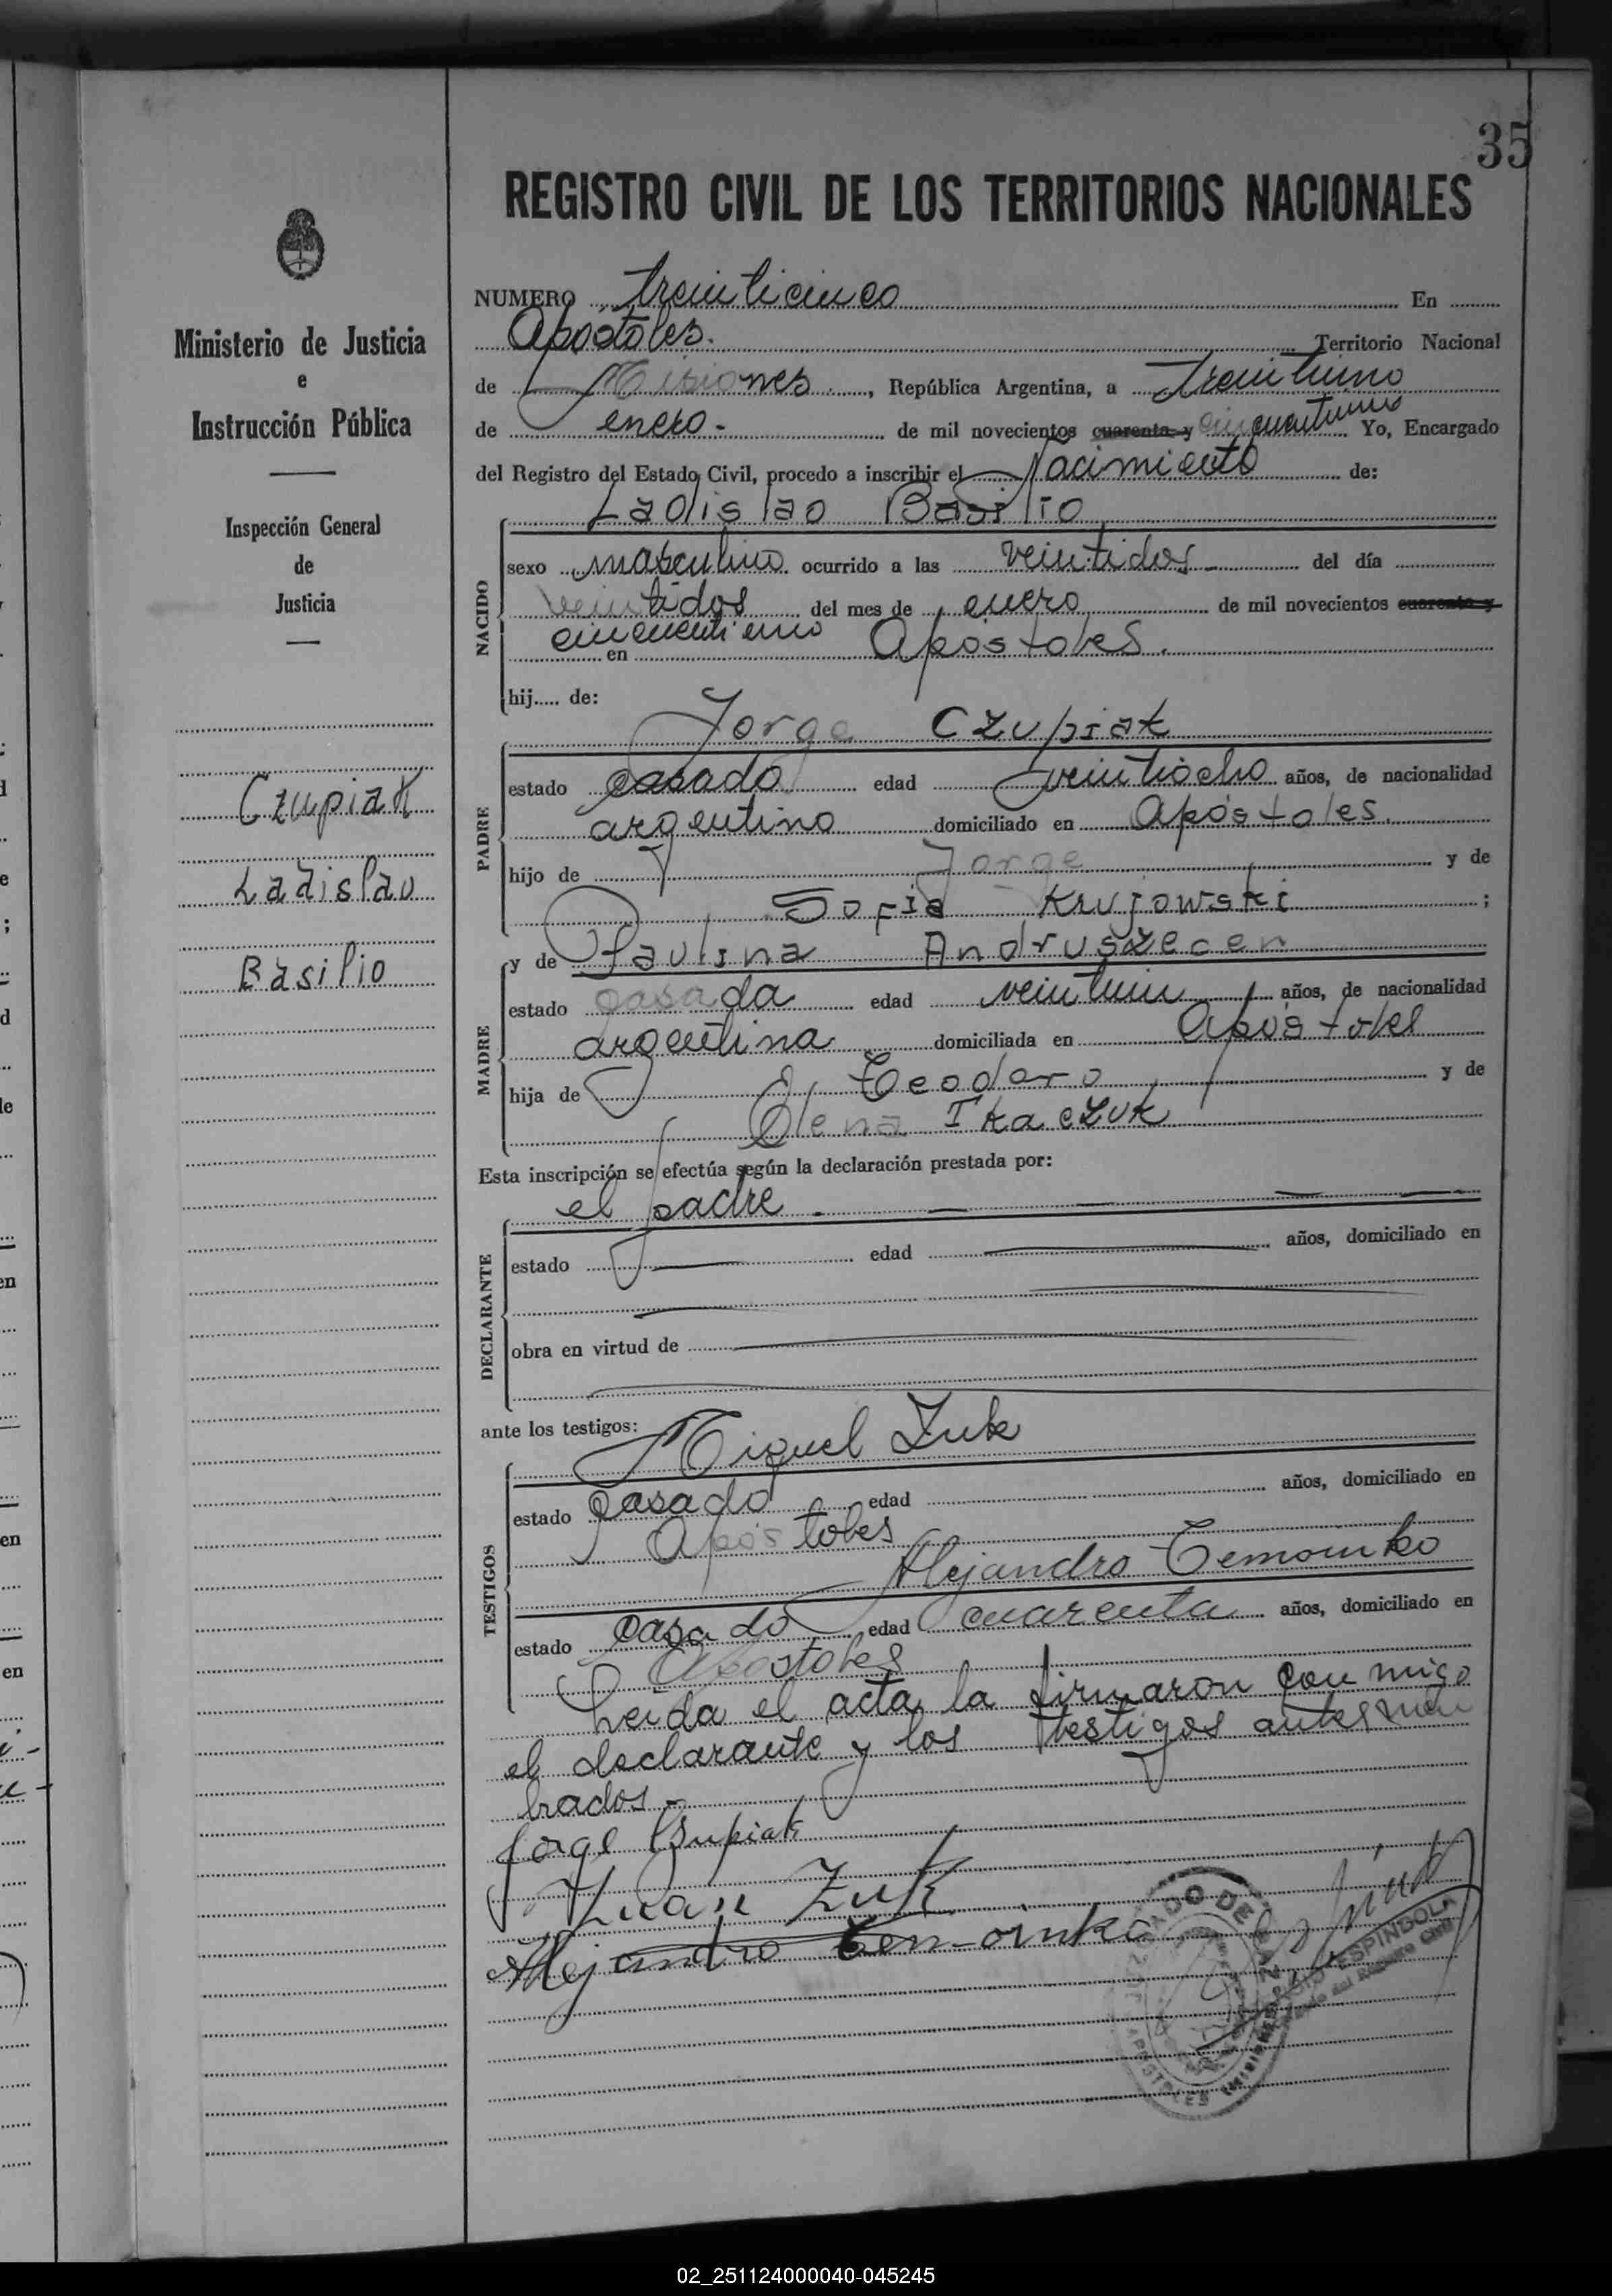 35
REGISTRO CIVIL DE LOS TERRITORIOS NACIONALES
Ministerio de Justicia
e
Instrucción Pública
Inspección General
de
Justicia
Czupiak
Ladislao
Basilio
NUMERO treinticinco En
Apóstoles. Territorio Nacional
de Misiones, República Argentina, a treintiuno
de enero.- de mil novecientos cuarenta y cincuentiuno Yo, Encargado
del Registro del Estado Civil, procedo a inscribir el Nacimiento de:
Ladislao Basilio
NACIDO
sexo masculino ocurrido a las veintidos del día
veintidos del mes de enero de mil novecientos cuarenta y
cincuentiuno en Apóstoles.
hij..... de:
Jorge Czupiak
PADRE
estado casado edad veintiocho años, de nacionalidad
argentino domiciliado en Apóstoles.
hijo de Jorge y de
Sofia Krujowski ;
y de Paulina Andruszecen
MADRE
estado casada edad veintiun años, de nacionalidad
argentina domiciliada en Apóstoles
hija de Teodoro y de
Elena Tkaczuk
Esta inscripción se efectúa según la declaración prestada por:
el padre.
DECLARANTE
estado edad años, domiciliado en
obra en virtud de
ante los testigos:
Miguel Zuk
TESTIGOS
estado casado edad años, domiciliado en
Apóstoles
Alejandro Temoinko
estado casado edad cuarenta años, domiciliado en
Apostoles
Leida el acta la firmaron conmigo
el declarante y los testigos antesnom
brados.-
Jorge Czupiak
Juan Zuk
Alejandro Temoinko
JUZGADO DE PAZ
APOSTOLES
ESPINDOLA
Encargado del Registro Civil
02_251124000040-045245